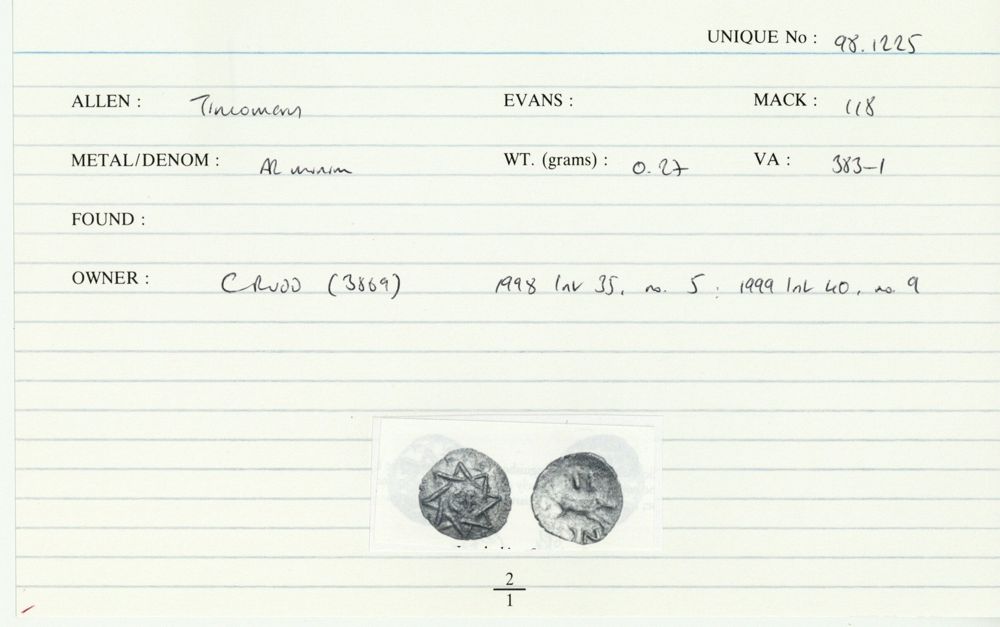 UNIQUE No : 98.1225
ALLEN : Tincomarus EVANS : MACK : 118
METAL/DENOM : AR minim WT. (grams) : 0.27 VA : 383-1
FOUND :
OWNER : C RUDD (3869) 1998 list 35, no. 5 : 1999 list 40, no. 9
2
1